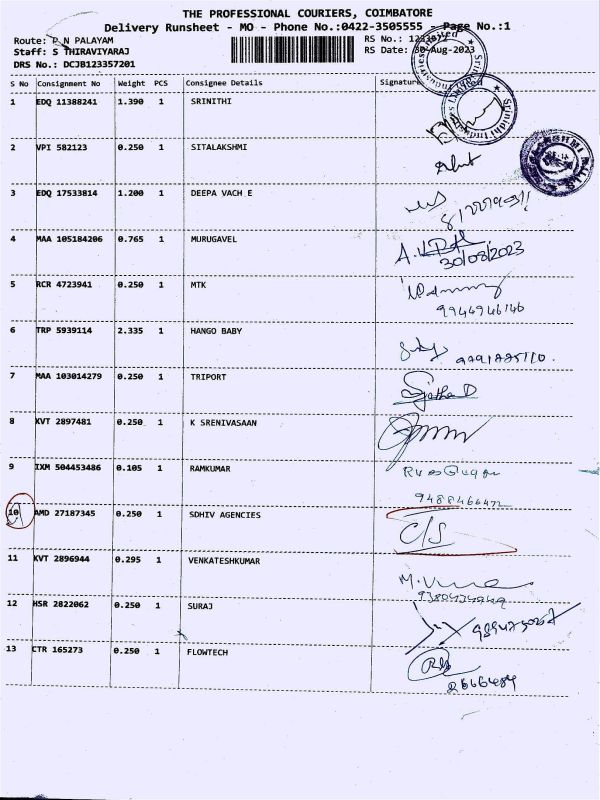 THE PROFESSIONAL COURIERS, COIMBATORE
Delivery Runsheet - MO - Phone No.:0422-3505555 - Page No.:1
Route: P N PALAYAM
RS No.:
Staff: S THIRAVIYARAJ
RS Date: 30-Aug-2023
DRS No.: DCJB123357201
S No Consignment No Weight PCS Consignee Details Signature
1 EDQ 11388241 1.390 1 SRINITHI
2 VPI 582123 0.250 1 SITALAKSHMI
3 EDQ 17533814 1.200 1 DEEPA VACH E
4 MAA 105184206 0.765 1 MURUGAVEL
30/08/2023
5 RCR 4723941 0.250 1 MTK
9944946146
6 TRP 5939114 2.335 1 HANGO BABY
7 MAA 103014279 0.250 1 TRIPORT
8 KVT 2897481 0.250 1 K SRENIVASAAN
9 IXM 504453486 0.105 1 RAMKUMAR
9488466472
10 AMD 27187345 0.250 1 SDHIV AGENCIES
C/S
11 KVT 2896944 0.295 1 VENKATESHKUMAR
12 HSR 2822062 0.250 1 SURAJ
13 CTR 165273 0.250 1 FLOWTECH